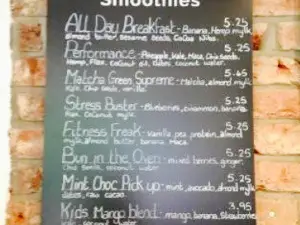 Smoothies
All Day Breakfast - Banana, Hemp mylk, 5.25
almond butter, sesame seeds, Cacao Nibs.
Performance - Pineapple, Kale, Maca, Chia seeds, 5.25
Hemp, Flax, Coconut oil, dates, coconut water.
Matcha Green Supreme - Matcha, almond mylk, 5.45
Chia seeds, vanilla.
Stress Buster - Blueberries, cinnamon, banana, 5.25
Flax, Coconut mylk.
Fitness Freak - vanilla pea protein, almond 5.25
mylk, almond butter, banana, Maca.
Bun in the Oven - mixed berries, ginger, 5.25
Chia seeds, coconut water.
Mint Choc Pick up - mint, avocado, almond mylk, 5.25
dates, raw cacao.
Kids Mango blend - mango, banana, Strawberries 3.95
coconut water